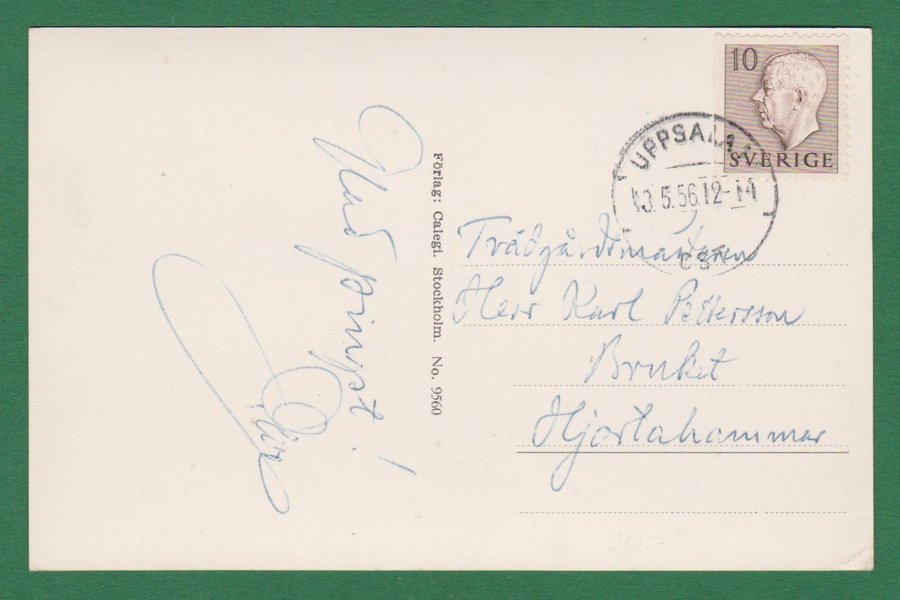 10
SVERIGE
UPPSALA
13.5.56.12-14
Glad pingst!
Förlag: Calegi. Stockholm. No. 9560
Trädgårdsmästaren
Herr Karl Pettersson
Bruket
Hjortahammar